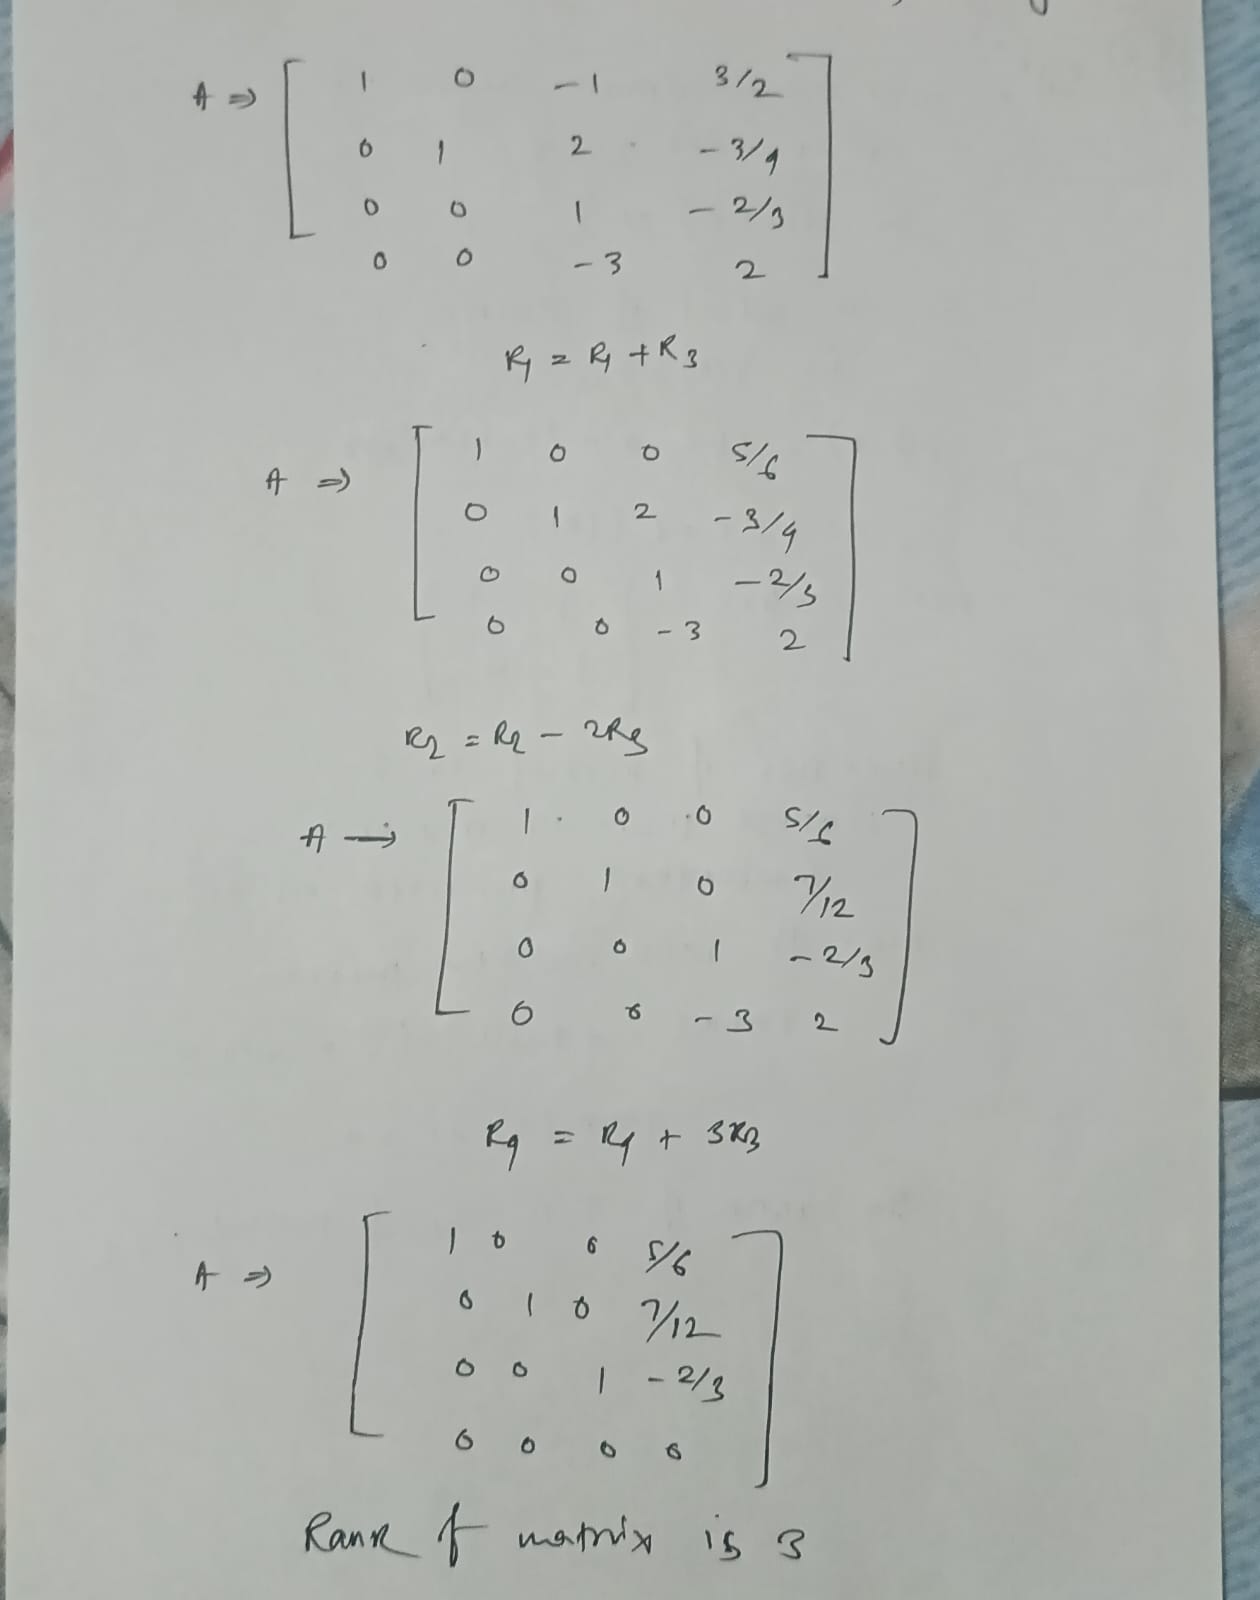 A ⇒ [ 1 0 -1 3/2
0 1 2 -3/4
0 0 1 -2/3
0 0 -3 2 ]
R1 = R1 + R3
A ⇒ [ 1 0 0 5/6
0 1 2 -3/4
0 0 1 -2/3
0 0 -3 2 ]
R2 = R2 - 2R3
A → [ 1 0 0 5/6
0 1 0 7/12
0 0 1 -2/3
0 0 -3 2 ]
R4 = R4 + 3R3
A ⇒ [ 1 0 0 5/6
0 1 0 7/12
0 0 1 -2/3
0 0 0 0 ]
Rank of matrix is 3